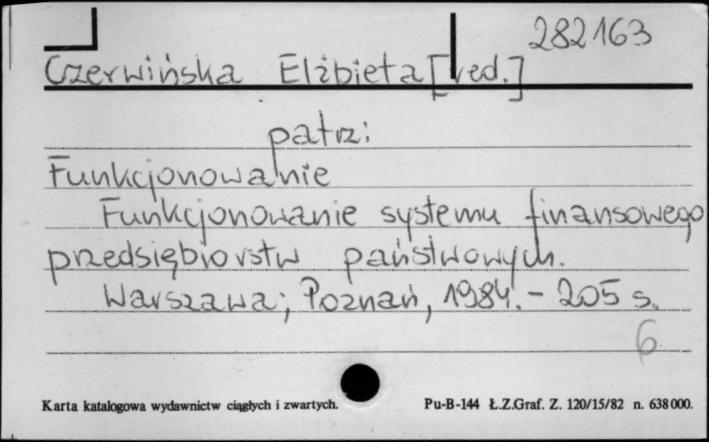 282163
Czerwińska Elżbieta [red.]
patrz:
Funkcjonowanie
Funkcjonowanie systemu finansowego
przedsiębiorstw państwowych.
Warszawa; Poznań, 1984. - 205 s.
6
Karta katalogowa wydawnictw ciągłych i zwartych. Pu-B-144 Ł.Z.Graf. Z. 120/15/82 n. 638000.